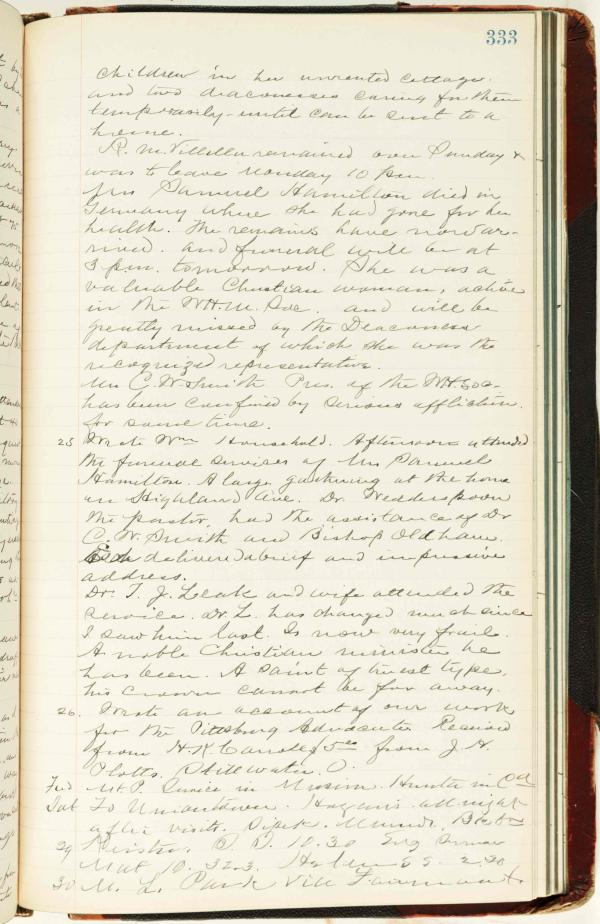 333
children in her unrented cottage.
and two deaconesses caring for them
temporarily - until can be sent to a
home.
R. M. remained over Sunday &
was to leave Monday 10 P.m.
Mrs Samuel Hamilton died in
Germany where she had gone for her
health. The remains have now ar-
rived. and funeral will be at
3 p.m. tomorrow. She was a
valuable Christian woman, active
in the W.H.M. Soc. and will be
greatly missed by the Deaconess
department of which she was the
recognized representative.
Mrs C. W. Smith Pres. of the W.H. Soc-
has been confined by serious affliction
for some time.
25 Wrote Wm Household. Afternoon attended
the funeral services of Mrs Samuel
Hamilton. A large gathering at the home
on Highland Ave. Dr. Wedderspoon
the pastor, had the assistance of Dr
C. W. Smith and Bishop Oldham.
Each delivered a brief and impressive
address.
Dr. T. J. Leak and wife attended the
service. Dr. L. has changed much since
I saw him last. Is now very frail.
A noble Christian minister he
has been. A saint of truest type.
his crown cannot be far away.
26. Wrote an account of our work
for the Pittsburg Advocate. Received
from H. K. 5.00 from J. H.
Plotts. Stillwater. O.
Frid Mt P. Service in Mission. Hunter in
Sat To Uniontown. all night
after visits.
29 S. S. 10.30 Eve
Mat 10. 32.3. 2.30
30 M. L. Park via Fairmont